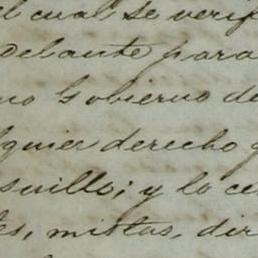 el cual se verif
delante para
no Gobierno de
lquier derecho
snillo; y lo ce
es, mistas, dir